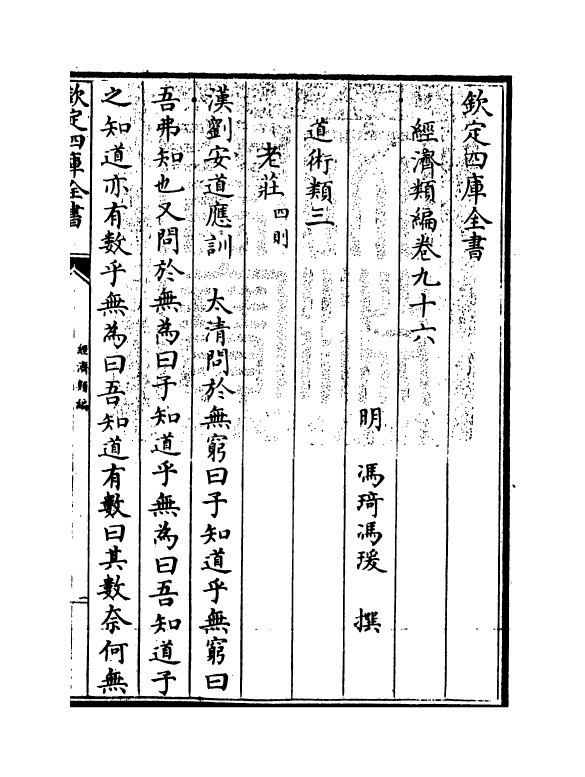 欽定四庫全書
經濟類編卷九十六
明　馮琦馮瑗　撰
道術類三
老莊四則
漢劉安道應訓　太清問於無窮曰子知道乎無窮曰
吾弗知也又問於無為曰子知道乎無為曰吾知道子
之知道亦有數乎無為曰吾知道有數曰其數奈何無
欽定四庫全書
經濟類編
一